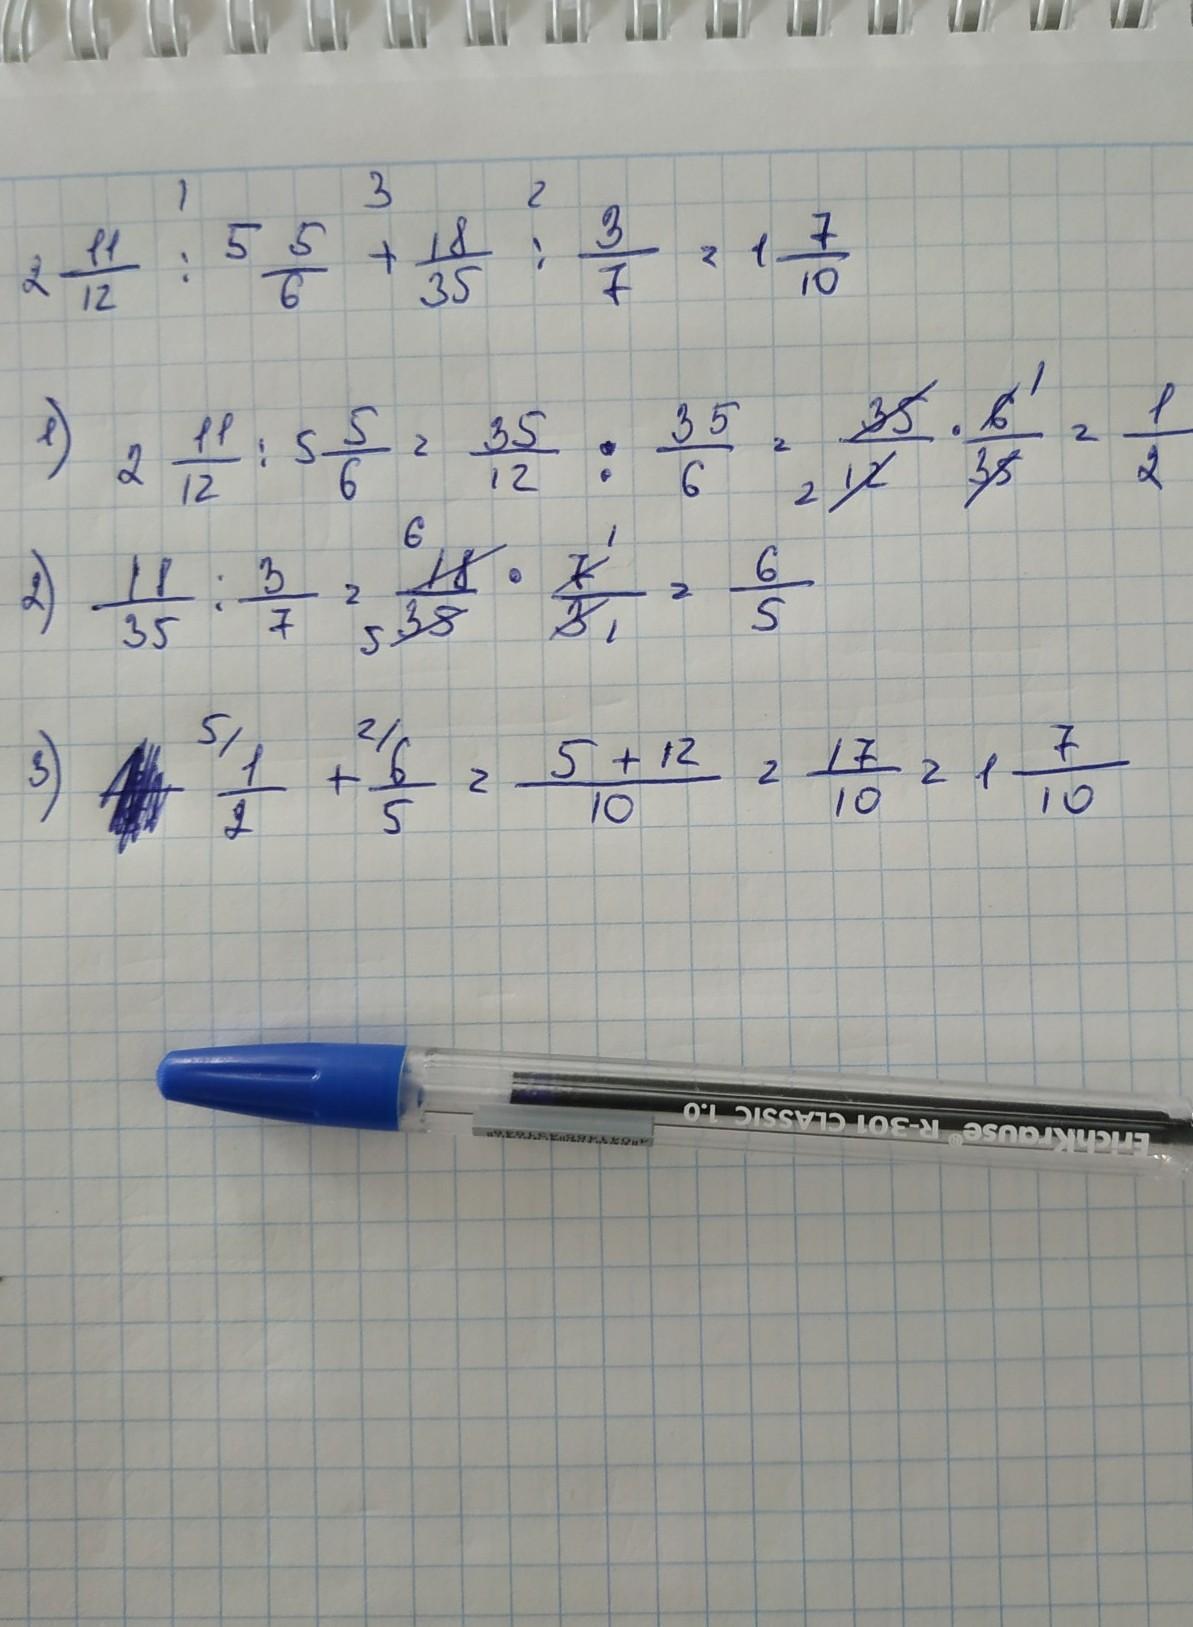 1 3 2
2 11/12 : 5 5/6 + 18/35 : 3/7 = 1 7/10
1) 2 11/12 : 5 5/6 = 35/12 : 35/6 = 35/12 2 · 6/35 1 = 1/2
2) 18/35 : 3/7 = 6 18/35 5 · 7/3 1 1 = 6/5
3) 5/ 1/2 + 2/ 6/5 = 5 + 12/10 = 17/10 = 1 7/10
ErichKrause® R-301 CLASSIC 1.0